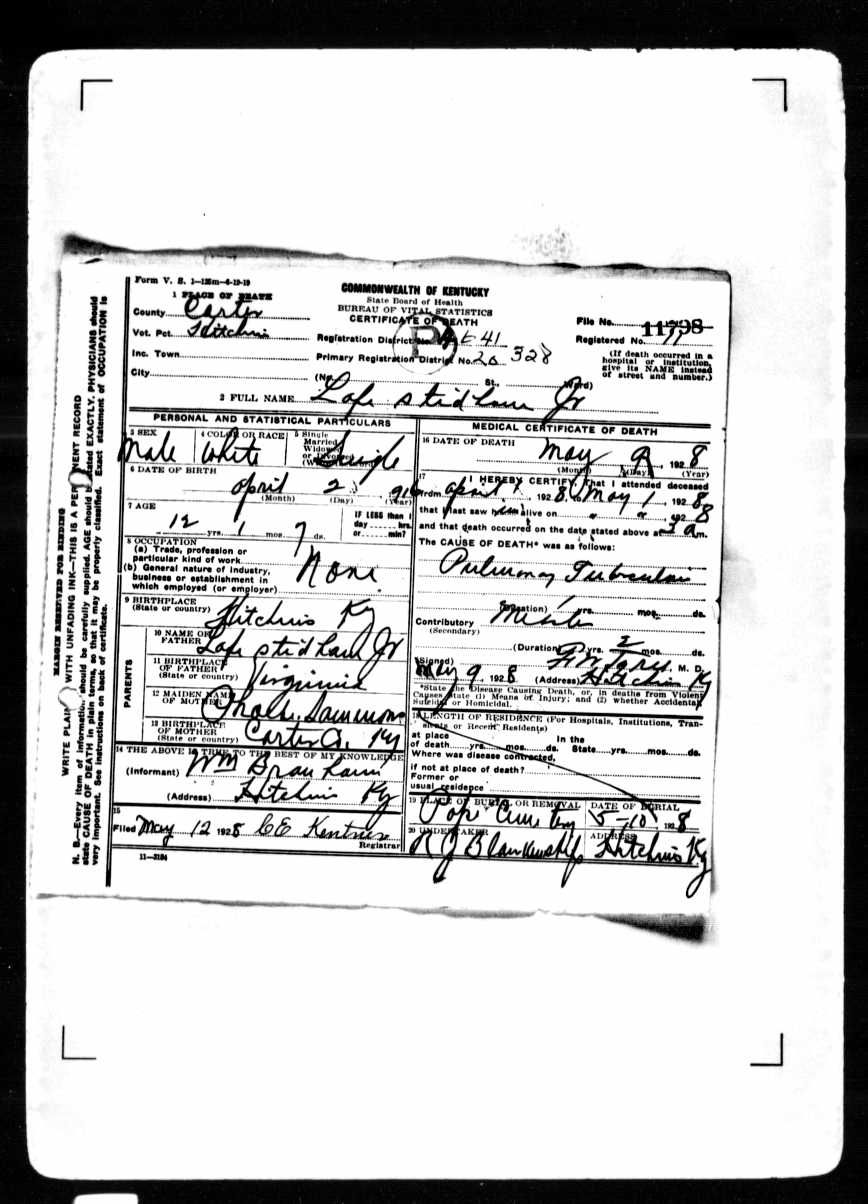 Form V. S. 1—125m—6-19-19
COMMONWEALTH OF KENTUCKY
State Board of Health
BUREAU OF VITAL STATISTICS
CERTIFICATE OF DEATH
1 PLACE OF DEATH
County Carter
Vot. Pct. Hitchins
Inc. Town
City
File No. 11798
Registered No.
Registration District No. 
Primary Registration District No.
(If death occurred in a
hospital or institution,
give its NAME instead
of street and number.)
(No. St. Ward)
2 FULL NAME Lafe Stidham Jr
PERSONAL AND STATISTICAL PARTICULARS
3 SEX Male
4 COLOR OR RACE White
5 Single
Married
Widowed
or Divorced
Single
6 DATE OF BIRTH
April 2
(Month) (Day) (Year)
7 AGE
12 yrs. 1 mos. 7 ds.
IF LESS than 1
day hrs.
or min?
8 OCCUPATION
(a) Trade, profession or
particular kind of work
(b) General nature of industry,
business or establishment in
which employed (or employer)
None
9 BIRTHPLACE
(State or country) Hitchins Ky
PARENTS
10 NAME OF
FATHER Lafe Stidham Jr
11 BIRTHPLACE
OF FATHER
(State or country) Virginia
12 MAIDEN NAME
OF MOTHER Sammons
13 BIRTHPLACE
OF MOTHER
(State or country) Carter Co. Ky
14 THE ABOVE IS TRUE TO THE BEST OF MY KNOWLEDGE
(Informant) Wm Branham
(Address) Hitchins Ky
15
Filed May 12 1928 CE
Registrar
11—3184
MEDICAL CERTIFICATE OF DEATH
16 DATE OF DEATH
May 9, 1928
(Month) (Day) (Year)
17 I HEREBY CERTIFY, that I attended deceased
from April 1, 1928, to May 1, 1928
that I last saw him alive on " " 1928
and that death occurred on the date stated above at 3 a m.
The CAUSE OF DEATH* was as follows:
Pulmonary
(Duration) yrs. mos. ds.
Contributory
(Secondary)
(Duration) yrs. 2 mos. ds.
(Signed) M. D.
May 9, 1928 (Address) Hitchins Ky
*State the Disease Causing Death, or, in deaths from Violent
Causes state (1) Means of Injury; and (2) whether Accidental,
Suicidal or Homicidal.
18 LENGTH OF RESIDENCE (For Hospitals, Institutions, Tran-
sients or Recent Residents)
at place In the
of death yrs. mos. ds. State yrs. mos. ds.
Where was disease contracted,
if not at place of death?
Former or
usual residence
19 PLACE OF BURIAL OR REMOVAL
DATE OF BURIAL
5-10, 1928
20 UNDERTAKER
R J Blankenship
ADDRESS
Hitchins Ky
MARGIN RESERVED FOR BINDING
WRITE PLAINLY WITH UNFADING INK—THIS IS A PERMANENT RECORD
N. B.—Every item of information should be carefully supplied. AGE should be stated EXACTLY. PHYSICIANS should
state CAUSE OF DEATH in plain terms, so that it may be properly classified. Exact statement of OCCUPATION is
very important. See instructions on back of certificate.